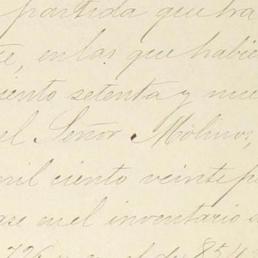 partida que tra
te, en las que habie
ciento setenta y nue
el Señor Molinos,
mil ciento veinte p
ase en el inventario
726 854